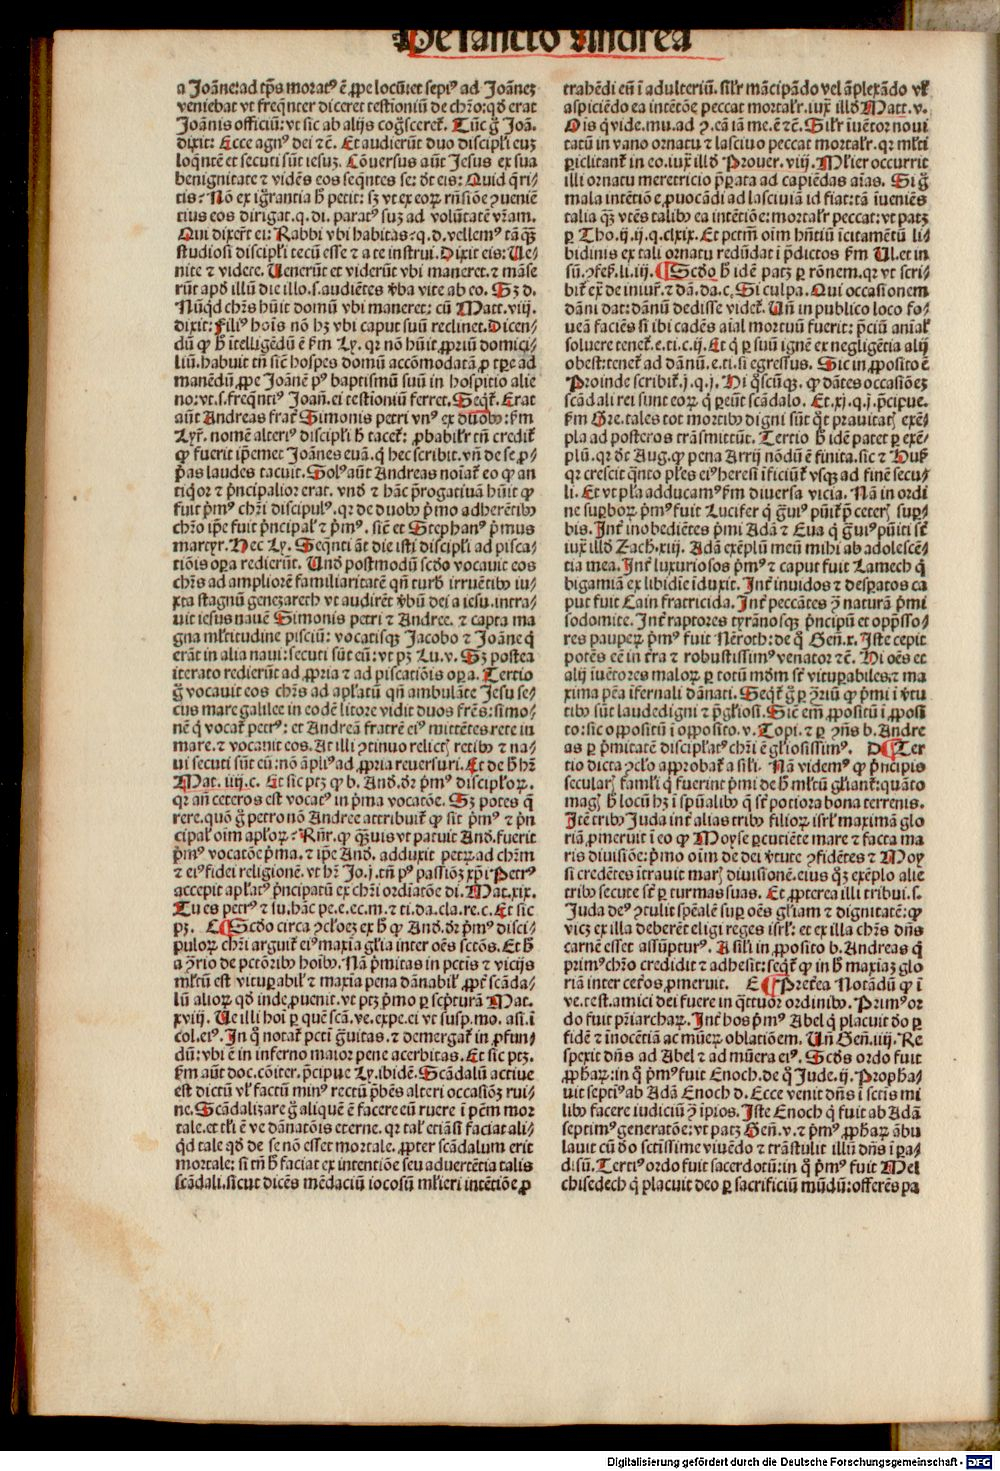 De sancto Andrea
a Joãne: ad tp̃s moratꝰ ē ꝓpe locũ: et sepiꝰ ad Joãneꝫ
veniebat vt freq̃nter diceret testioniũ de chr̃o: qđ erat
Joãnis officiũ: vt sic ab alijs cog̃sceret᷑. Tũc g̃ Joã.
dixit: Ecce agnꝰ dei ⁊ c̃. Et audierũt duo discipl̓i euꝫ
loq̃ntē et secuti sũt iesuꝫ. Cõversus aũt Jesus ex sua
benignitate ⁊ vidẽs eos seq̃ntes se: dt̃ eis: Quid q̃ri⸗
tis? Nõ ex ig̃rantia h̃ petit: sꝫ vt ex eoꝝ rñsiõe ꝯueniẽ
tius eos dirigat. q. di. paratꝰ suꝫ ad volũtatē vr̃am.
Qui dixer̃t ei: Rabbi vbi habitas? q. d. vellemꝰ tãq̃ꝫ
studiosi discipl̓i tecũ esse ⁊ a te instrui. Dixit eis: Ue⸗
nite ⁊ videte. Uenerũt et viderũt vbi maneret. ⁊ mãse
rũt apđ illũ die illo. s. audiẽtes v̓ba vite ab eo. Sꝫ d.
Nũq̃d chr̃s hũit domũ vbi maneret: cũ Matt. viij.
dixit: Filiꝰ hoĩs nõ hꝫ vbi caput suũ reclinet. Dicen⸗
dũ ꝙ h̃ ĩtelligẽdũ ē ẜm Ly. qr nõ hũit ꝓpriũ domici⸗
liũ. habuit tñ sic̃ hospes domũ accõmodatã ꝓ tp̃e ad
manẽdũ ꝓpe Joãnē pꝰ baptismũ suũ in hospitio alie
no: vt. s. freq̃ntiꝰ Joañ. ei testioniũ ferret. Seqt᷑. Erat
aũt Andreas frat̃ Simonis petri vnꝰ ex duobꝰ: ẜm
Lyr̃. nomẽ alteriꝰ discipl̓i h̃ tacet᷑: ꝓbabil̓r tñ credit᷑
ꝙ fuerit ip̃emet Joãnes euã. q̓ hec scribit. vñ de se ꝓ⸗
p̃as laudes tacuit. Solꝰ aũt Andreas noĩat᷑ eo ꝙ an
tiq̓or ⁊ p̃ncipalior erat. vnđ ⁊ hãc p̃rogatiuã hũit ꝙ
fuit p̓mꝰ chr̃i discipulꝰ. qr de duobꝰ p̓mo adherẽtibꝰ
chr̃o ip̃e fuit p̃ncipal̓ ⁊ p̓mꝰ. sic̃ et Stephanꝰ p̓mus
martyr. Hec Ly. Seq̃nti aũt die isti discipl̓i ad pisca⸗
tiõis oꝑa redierũt. Unđ postmodũ scđo vocauit eos
chr̃s ad ampliorē familiaritatē qñ turb̃ irruẽtibꝰ iu⸗
xta stagnũ genezareth vt audirẽt v̓bũ dei a iesu. intra⸗
uit iesus nauē Simonis petri ⁊ Andree. ⁊ capta ma
gna ml̓titudine pisciũ: vocatisqꝫ Jacobo ⁊ Joãne q̓
erãt in alia naui: secuti sũt eũ: vt pꝫ Lu. v. Sꝫ postea
iterato redierũt ad ꝓpria ⁊ ad piscatiõis oꝑa. Tertio
g̃ vocauit eos chr̃s ad apl̓atũ qñ ambulãte Jesu se⸗
cus mare galilee in eodē litore vidit duos fr̃es: simo⸗
nē q̓ vocat᷑ petrꝰ: et Andreã fratrē eiꝰ mittẽtes rete in
mare. ⁊ vocauit eos. At illi ꝯtinuo relictꝭ retibꝰ ⁊ na⸗
ui secuti sũt eũ: nõ apliꝰ ad ꝓpria reuersuri. Et de h̃ hr̃
Mat. iiij. c. Et sic ptꝫ ꝙ b. Anđ. dr̃ p̓mꝰ discipl̓oꝝ.
qr añ ceteros est vocatꝰ in p̓ma vocatõe. Sꝫ potes q̃
rere. quõ g̃ petro nõ Andree attribuit᷑ ꝙ sit p̓mꝰ ⁊ p̃n
cipal̓ oĩm apl̓oꝝ? Rñr. ꝙ q̃ꝫuis vt patuit Anđ. fuerit
p̓mꝰ vocatõe p̓ma. ⁊ ip̃e Anđ. adduxit petrũ ad chr̃m
⁊ eiꝰ fidei religionē. vt hr̃ Jo. j. tñ pꝰ passiõꝫ xp̃i Petrꝰ
accepit apl̓atꝰ p̃ncipatũ ex chr̃i ordĩatõe di. Mat. xix.
Tu es petrꝰ ⁊ su. hãc pe. e. ec. m. ⁊ ti. da. cla. re. c. Et sic
pꝫ. C Scđo circa ꝯcl̓oeꝫ ex h̃ ꝙ Anđ. dr̃ p̓mꝰ disci⸗
puloꝝ chr̃i arguit᷑ eiꝰ maxĩa gl̓ia inter oẽs sctõs. Et h̃
a ꝯ̃rio de pctõribꝰ hoĩbꝰ. Nã p̓mitas in pctis ⁊ vicijs
ml̓tũ est vitupabil̓ ⁊ maxĩa pena dãnabil̓ ꝓpt̃ scãda⸗
lũ alioꝝ qđ inde ꝓuenit. vt ptꝫ p̓mo ꝑ sc̓pturã Mat.
xviij. Ue illi hoĩ ꝑ quē scã. ve. expe. ei vt susp. mo. asi. ĩ
col. eiꝰ. In q̓ notat᷑ pcti g̃uitas. ⁊ demergat᷑ in ꝓfun⸗
dũ: vbi ē in inferno maior pene acerbitas. Et sic ptꝫ.
ẜm aũt doc. cõiter. p̃cipue Ly. ibidē. Scãdalũ actiue
est dictũ vl̓ factũ minꝰ rectũ p̃bẽs alteri occasiõꝫ rui⸗
ne. Scãdalizare g̃ aliquē ē facere eũ ruere ĩ pc̃m mor
tale. et tl̓i ē ve dãnatõis eterne. qr tal̓ etiã si faciat ali⸗
q̓d tale qđ de se nõ esset mortale. ꝓpter scãdalum erit
mortale: si tñ h̃ faciat ex intentiõe seu aduertẽtia talis
scãdali. sicut dicẽs mẽdaciũ iocosũ ml̓ieri intẽtiõe ꝓ
trahẽdi eũ ĩ adulteriũ. sil̓r mãcipãdo vel ãplexãdo vl̓
aspiciẽdo ea intẽtõe peccat mortal̓r. iux̃ illđ Matt. v.
Oĩs q̓ vide. mu. ad ꝯ. eã iã me. ē ⁊c̃. Sil̓r iuẽtor noui
tatũ in vano ornatu ⁊ lasciuo peccat mortal̓r. qr ml̓ti
periclitant᷑ in eo. iux̃ illđ Prouer. viij. Ml̓ier occurrit
illi ornatu meretricio p̃ꝑata ad capiẽdas aĩas. Si g̃
mala intẽtiõe ꝓuocãdi ad lasciuiã id fiat: tã iuuenẽs
talia q̃ꝫ vtẽs talibꝰ ea intẽtiõe: mortal̓r peccat: vt patꝫ
ꝑ Tho. ij. ij. q. clxix. Et pctm̃ oĩm hñtiũ ĩcitamẽtũ li⸗
bidinis ex tali ornatu redũdat ĩ p̃dictos ẜm Ul. et in
sũ. ꝯfes̃. li. iij. Scđo h̃ idē patꝫ ꝑ rõnem. qr vt scri⸗
bit᷑ ex̃ de iniur̃. ⁊ dã. da. c. Si culpa. Qui occasionem
dãni dat: dãnũ dedisse videt᷑. Uñ in publico loco fo⸗
ueã faciẽs si ibi cadẽs aĩal mortuũ fuerit: p̃ciũ aĩal̓
soluere tenet᷑. e. ti. c. ij. Et q̓ ꝑ suũ ignē ex negligẽtia alij
obest: tenet᷑ ad dãnũ. e. ti. si egressus. Sic in ꝓposito ē
Proinde scribit᷑. j. q. j. Hi q̓cũqꝫ. ꝙ dãtes occasiõeꝫ
scãdali rei sunt eoꝝ q̓ pereũt scãdalo. Et. xj. q. j. p̃cipue.
ẜm Gre. tales tot mortibꝰ digni sũt q̃t prauitatꝭ exẽ⸗
pla ad posteros trãsmittũt. Tertio h̃ idē patet ꝑ exẽ⸗
plũ. qr dt̃ Aug. ꝙ pena Arrij nõdũ ē finita. sic ⁊ Husꝭ
qr crescit q̃nto pl̓es eiꝰ heresi ĩficiũt᷑ vsqꝫ ad finē secu⸗
li. Et vt pl̓a adducamꝰ ẜm diuersa vicia. Nã in ordi
ne suꝑboꝝ p̓mꝰ fuit Lucifer q̓ g̃uiꝰ puñit᷑ p̃ ceterꝭ suꝑ⸗
bis. Int̃ inobediẽtes p̓mi Adã ⁊ Eua q̓ g̃uiꝰ pũiti sũt
iux̃ illđ Zach. xiij. Adã exẽplũ meũ mihi ab adolescẽ⸗
tia mea. Int̃ luxuriosos p̓mꝰ ⁊ caput fuit Lamech q̓
bigamiã ex libidĩe ĩduxit. Int̃ inuidos ⁊ desꝑatos ca
put fuit Cain fratricida. Int̃ peccãtes ꝯ̃ naturã p̓mi
sodomite. Int̃ raptores tyrãnosqꝫ p̃ncipũ et opp̃sso⸗
res pauperꝝ p̓mꝰ fuit Nẽroth: de q̓ Geñ. x. Iste cepit
potẽs eē in tr̃a ⁊ robustissimꝰ venator ⁊c̃. Hi oẽs et
alij iuẽtores maloꝝ ꝑ totũ mũdm sũt vituꝑabiles. ⁊ ma
xima pẽa ĩfernali dãnati. Seqt᷑ g̃ ꝑ ꝯ̃riũ ꝙ p̓mi ĩ v̓tu
tibꝰ sũt laude digni ⁊ p̃gl̓iosi. Sic̃ em̃ ꝓpositũ ĩ ꝓposi
to: sic oppositũ ĩ opposito. v. Topi. ⁊ ꝑ ꝯñs b. Andre
as ꝑ p̓mitatē disciplatꝰ chr̃i ē gl̓iosissimꝰ. D Ter
tio dicta ꝯcl̓o approbat᷑ a sil̓i. Nã videmꝰ ꝙ p̃ncipis
secularꝭ faml̓i q̓ fuerint p̓mi de h̃ ml̓tũ gl̓iant᷑: quãto
magꝭ h̃ locũ hꝫ ĩ spũalibꝰ q̃ sũt potiora bona terrenis.
Itē tribꝰ Juda int̃ alias tribꝰ filioꝝ isrl̓ maximã glo
riã ꝓmeruit ĩ eo ꝙ Moyse ꝑcutiẽte mare ⁊ facta ma
ris diuisiõe: p̓mo oĩm de dei v̓tute ꝯfidẽtes ⁊ Moy
si credẽtes ĩtrauit marꝭ diuisionẽ. eius q̃ꝫ exẽplo alie
tribꝰ secute sũt ꝑ turmas suas. Et ꝓpterea illi tribui. s.
Juda deꝰ ꝯtulit sp̃ealē suꝑ oẽs gl̓iam ⁊ dignitatē: ꝙ
vicꝫ ex illa deberẽt eligi reges isrl̓: et ex illa chr̃s dñs
carnē esset assũpturꝰ. A sil̓i in ꝓposito b. Andreas q̓
primꝰ chr̃o credidit ⁊ adhesit: seqt᷑ ꝙ in h̃ maxĩaꝫ glo
riã inter cet̃os ꝓmeruit. E Pret̃ea Notãdũ ꝙ ĩ
ve. test. amici dei fuere in q̃ttuor ordinibꝰ. Primꝰ or
do fuit p̃riarchaꝝ. Int̃ hos p̓mꝰ Abel q̓ placuit dõ ꝑ
fidē ⁊ inocẽtiã ac mũeꝝ oblatiõem. Uñ Geñ. iiij. Re
spexit dñs ad Abel ⁊ ad mũera eiꝰ. Scđs ordo fuit
ꝓphaꝝ: in q̓ p̓mꝰ fuit Enoch. de q̓ Jude. ij. Propha⸗
uit septiꝰ ab Adã Enoch d. Ecce venit dñs ĩ sctis mi
libꝰ facere iudiciũ ꝯ̃ ĩpios. Iste Enoch q̓ fuit ab Adã
septimꝰ generatõe: vt patꝫ Geñ. v. ⁊ p̓mꝰ ꝓphaꝝ ãbu
lauit cũ dõ sctissime viuẽdo ⁊ trãstulit illũ dñs ĩ para⸗
disũ. Tertiꝰ ordo fuit sacerdotũ: in q̓ p̓mꝰ fuit Mel
chisedech q̓ placuit deo ꝑ sacrificiũ mũdũ: offerẽs pa
Digitalisierung gefördert durch die Deutsche Forschungsgemeinschaft - DFG